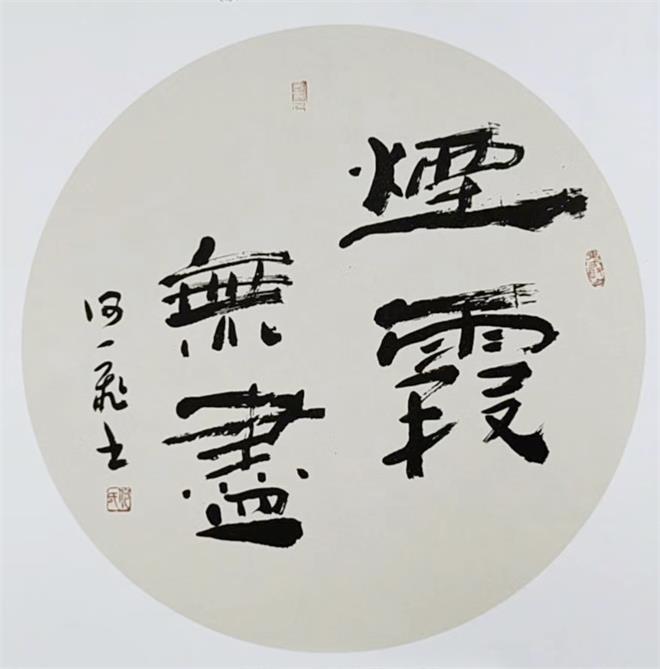 煙霞
無盡
何一飛書